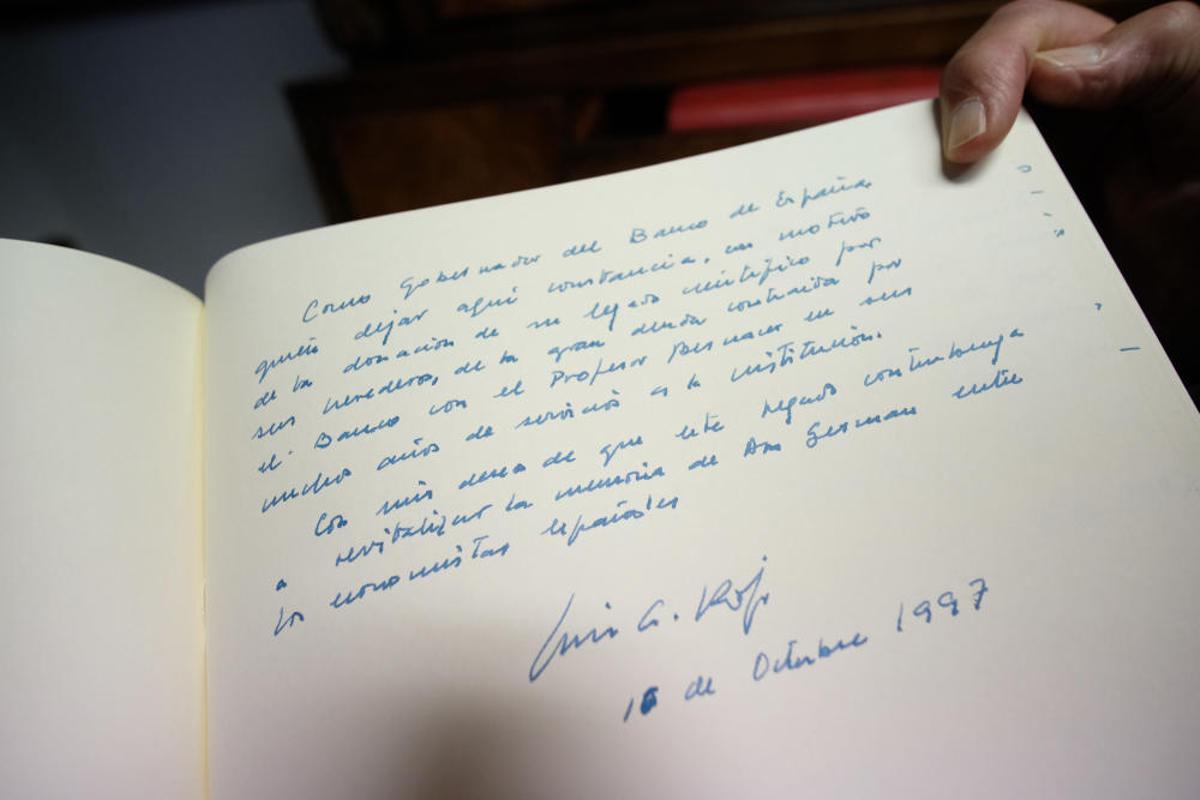 Como Gobernador del Banco de España
quiero dejar aquí constancia, con motivo
de la donación de su legado científico por
sus herederos, de la gran deuda contraida por
el Banco con el Profesor Bernacer en sus
muchos años de servicio a la institución.
Con mis deseos de que este legado contribuya
a revitalizar la memoria de Don German entre
los economistas españoles
Luis A. Rojo
de Octubre 1997